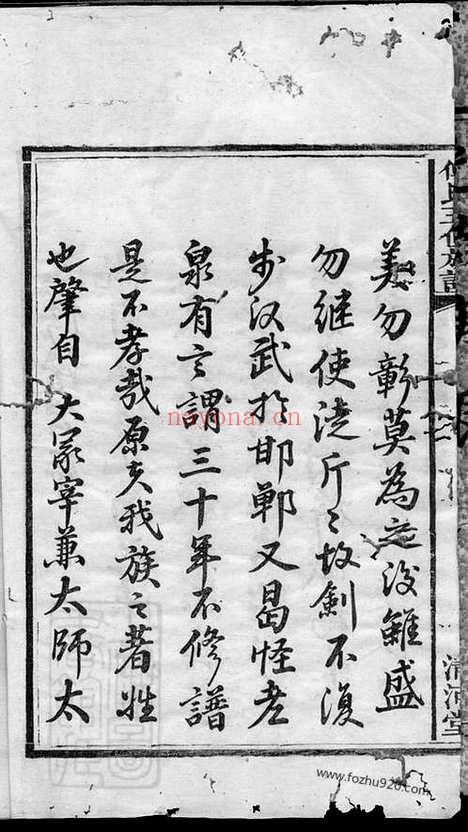 美勿彰莫為之後雖盛
勿继使淺斤〻故劍不復
步汉武於邯郸又曷怪老
泉有言謂三十年不修譜
是不孝哉原夫我族之著姓
也肇自 大冡宰兼太師太
清河堂
nayona.cn
www.fozhu920.com